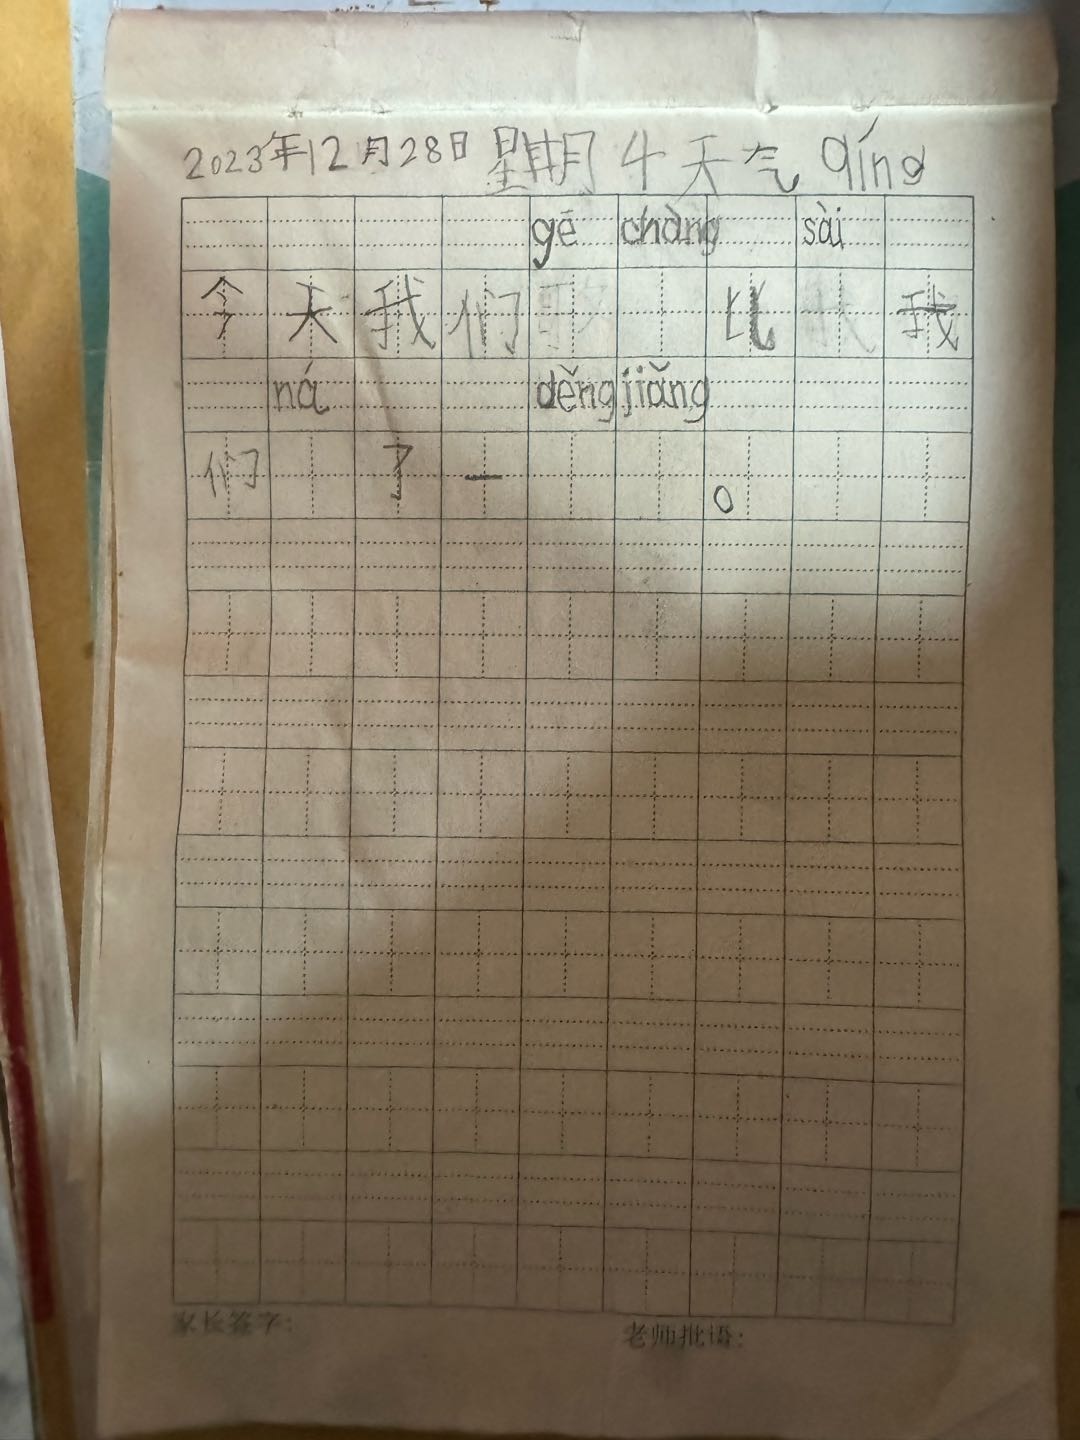 2023年12月28日 星期4 天气 qíng
gē chàng sài
今天我们 比 我
ná děng jiǎng
们 了一 。
家长签字:
老师批语: